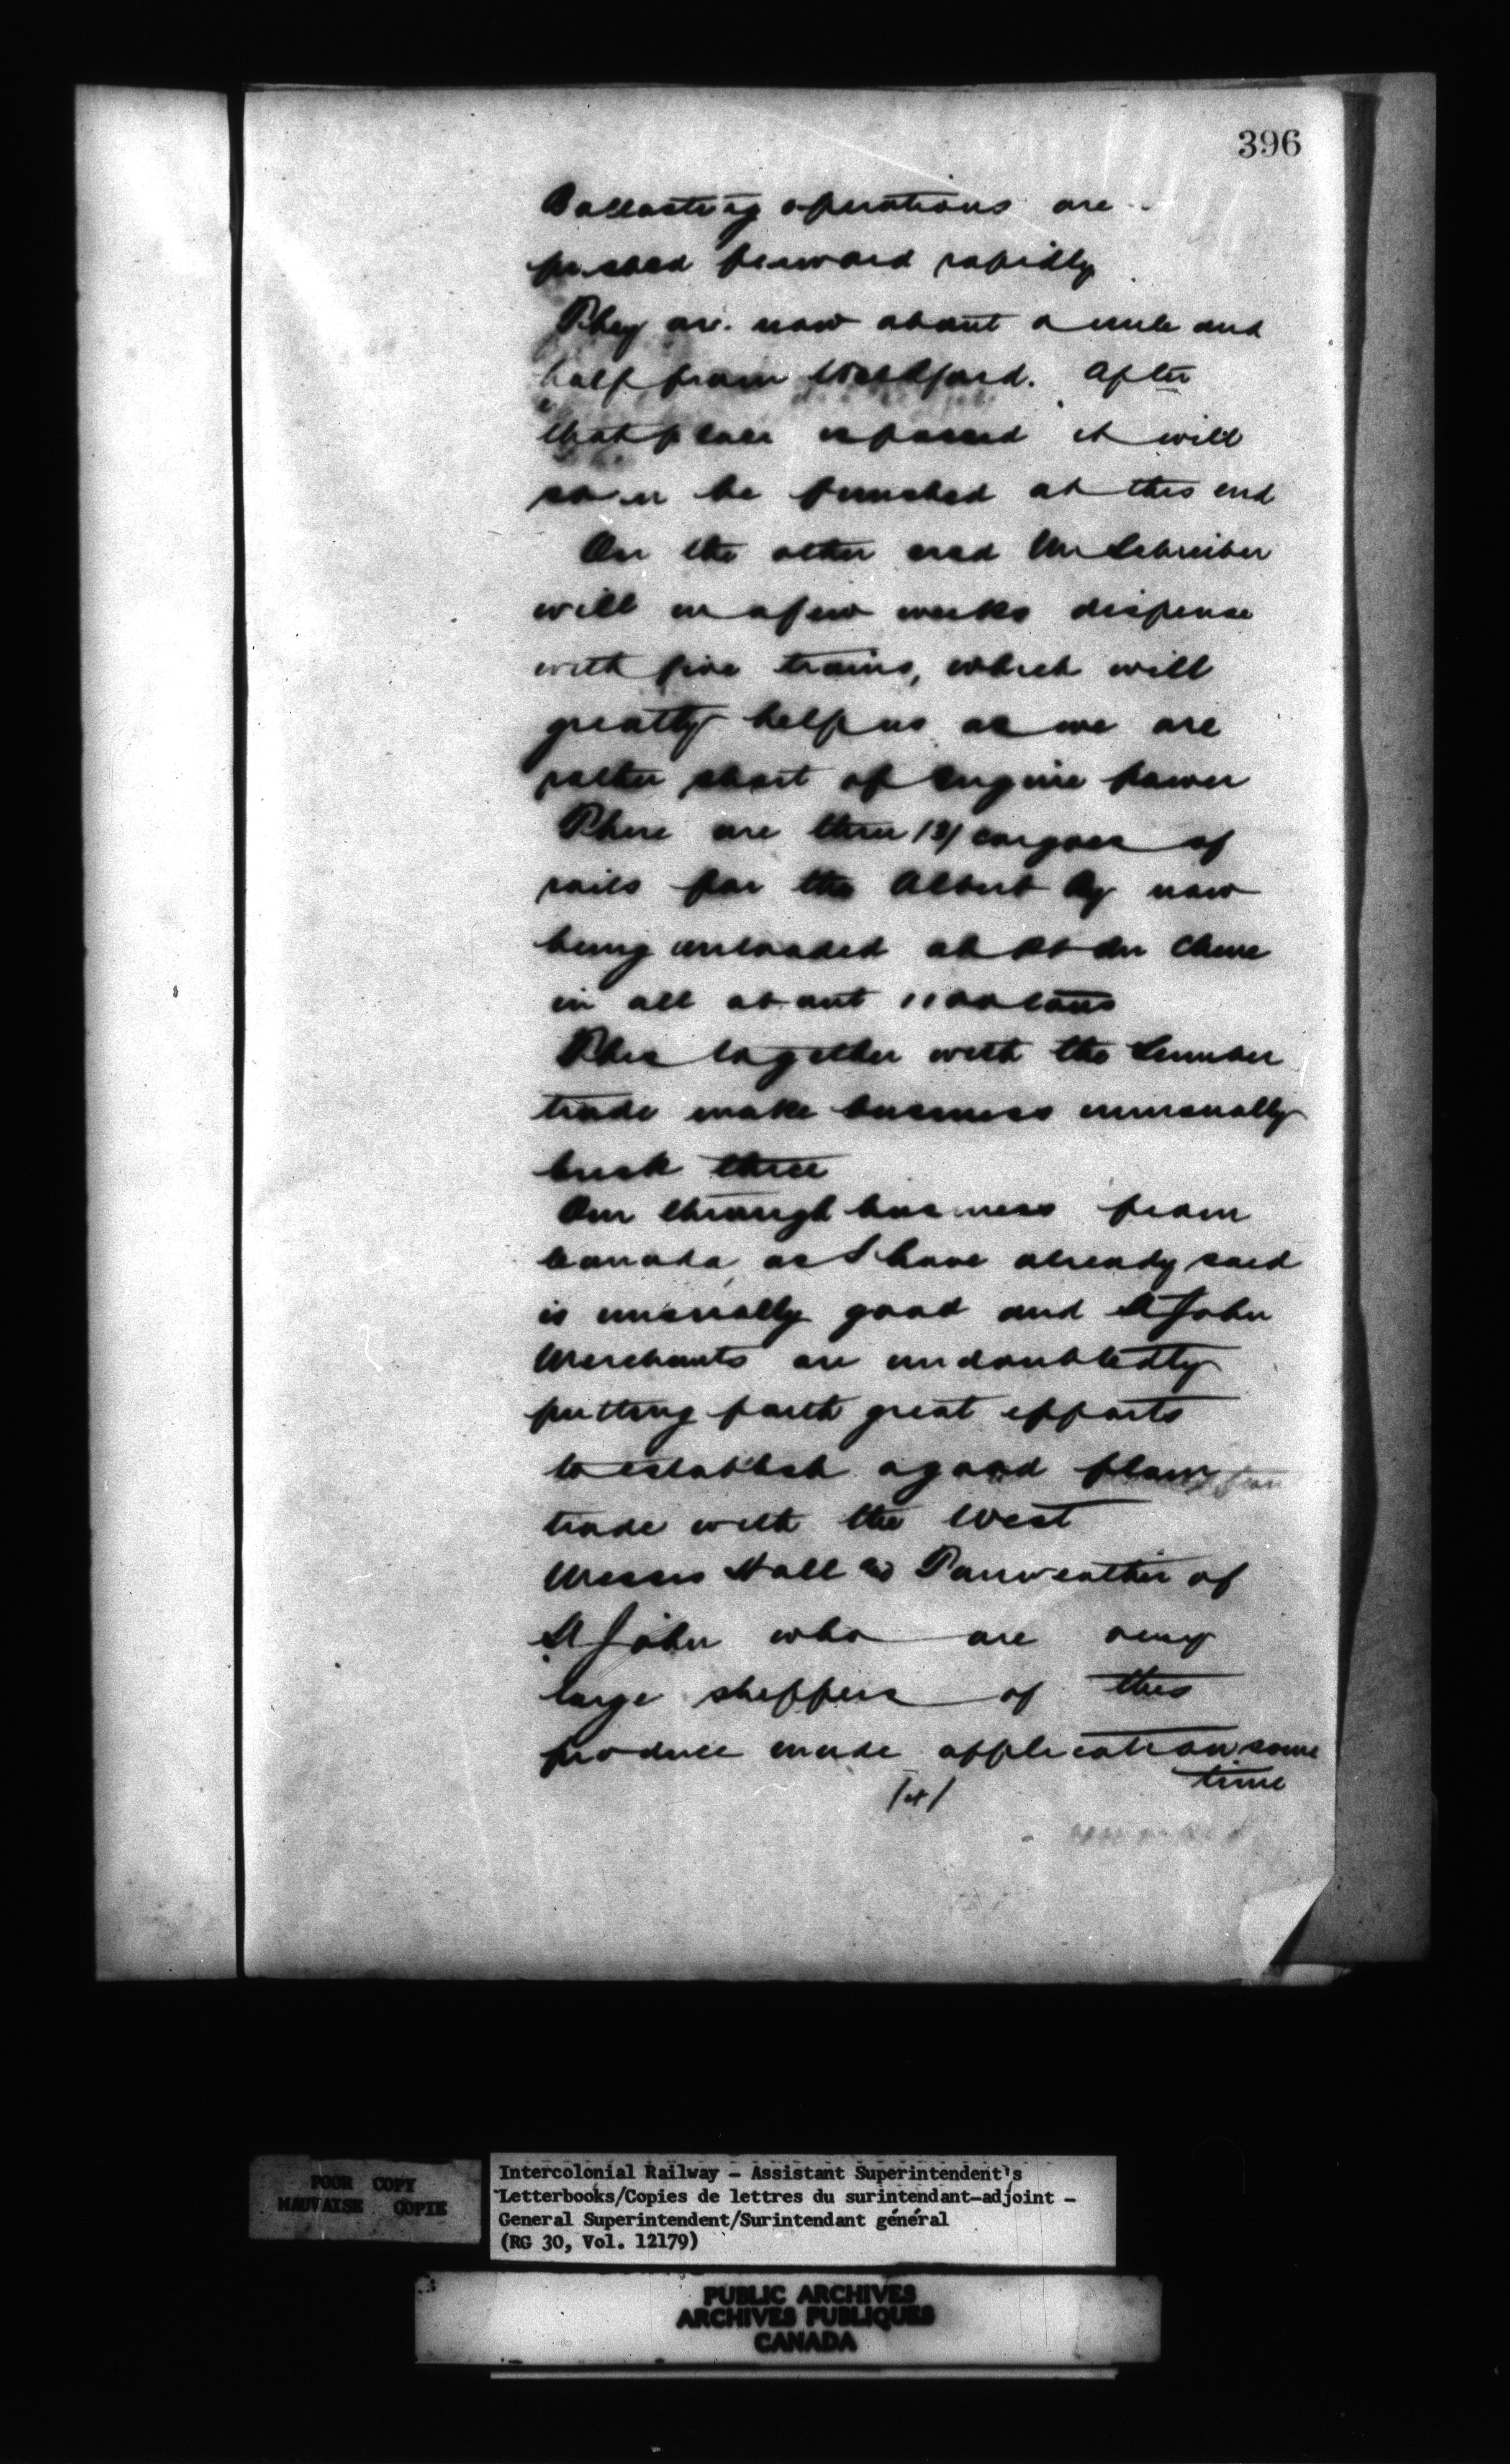 396
Ballasting operations are
pushed forward rapidly
They are now about a mile and
half from Weldford. After
that place is passed it will
soon be finished at this end
On the other end Mr Schreiber
will in a few weeks dispense
with five trains, which will
greatly help us as we are
rather short of Engine power
There are three /3/ cargoes of
rails for the Albert Ry now
being unloaded at Pt du Chene
in all about 1100 tons
This together with the Lumber
trade make business unusually
brisk there
Our through business from
Canada, as I have already said
is unusually good and St John
Merchants are undoubtedly
putting forth great efforts
to establish a good flour
trade with the West
Messrs Hall & Fairweather of
St John who are very
large shippers of this
produce made application some
time
/4/
POOR COPY
MAUVAISE COPIE
Intercolonial Railway - Assistant Superintendent's
Letterbooks/Copies de lettres du surintendant-adjoint -
General Superintendent/Surintendant général
(RG 30, Vol. 12179)
PUBLIC ARCHIVES
ARCHIVES PUBLIQUES
CANADA